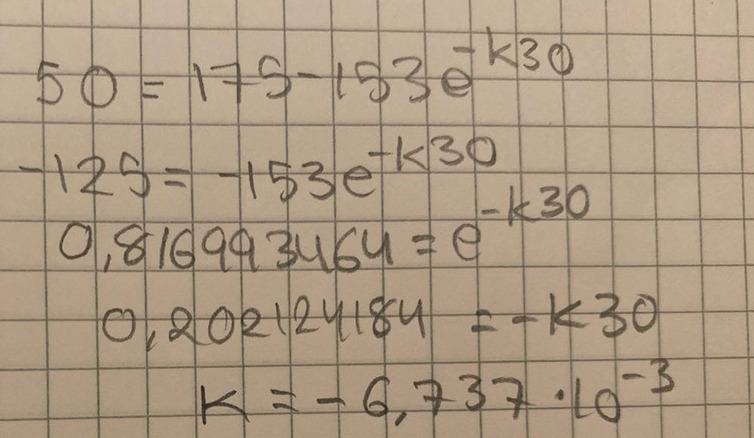 50 = 175 - 153e^{-k30}
-125 = -153e^{-k30}
0,816993464 = e^{-k30}
0,202124184 = -k30
k = -6,737 · 10^{-3}